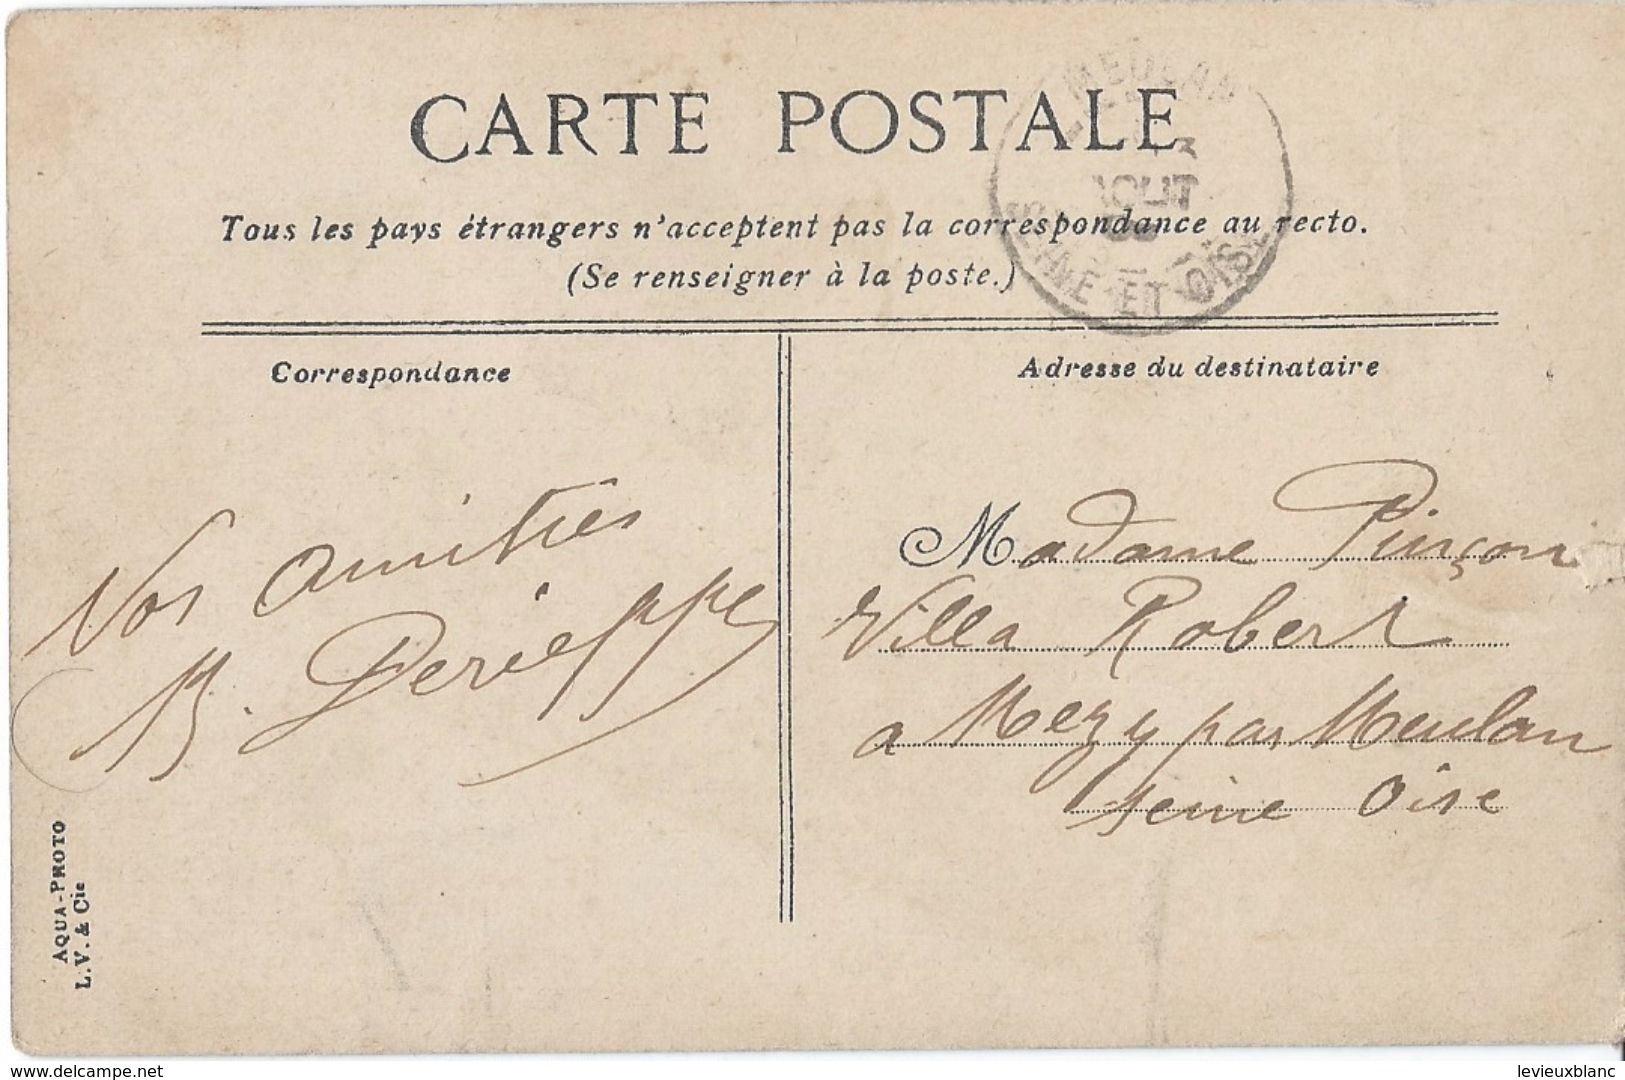 CARTE POSTALE
Tous les pays étrangers n'acceptent pas la correspondance au recto.
(Se renseigner à la poste.)
MEULAN
AOUT
SEINE-ET-OISE
Correspondance
Nos amitiés
Derieppe
Adresse du destinataire
Madame Pinçon
Villa Robert
a Mezy par Meulan
Seine Oise
AQUA-PHOTO
L.V. & Cie
delcampe.net
levieuxblanc